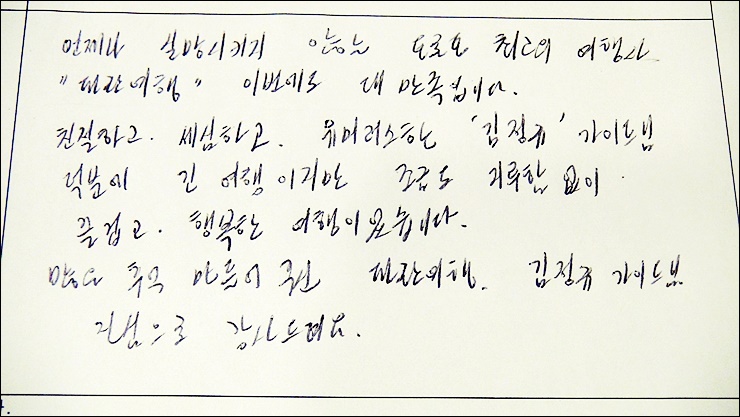 언제나 실망시키지 않는 최고의 여행사
"파란여행" 이번에도 대 만족입니다.
친절하고. 세심하고. 유머러스한 '김정규' 가이드님
덕분에 긴 여행이지만 조금도 지루함 없이
즐겁고. 행복한 여행이였습니다.
많은 추억 만들어 준 파란여행. 김정규 가이드님
진심으로 감사드려요.